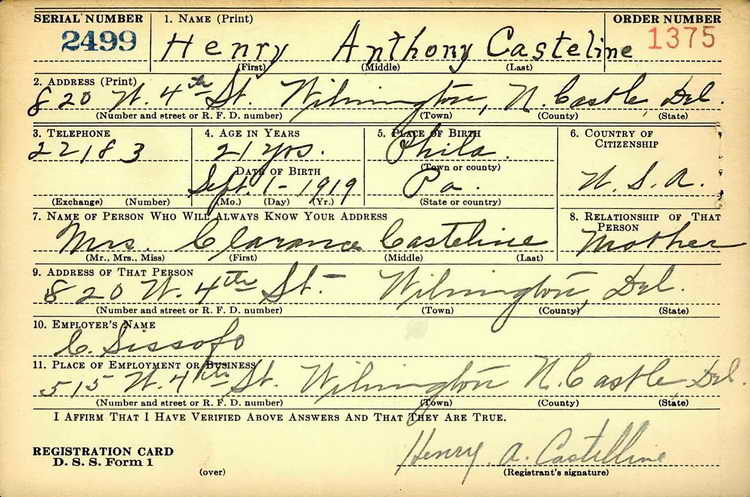 SERIAL NUMBER 1. NAME (Print) ORDER NUMBER
2499 Henry Anthony Casteline 1375
(First) (Middle) (Last)
2. ADDRESS (Print)
820 W. 4th St. Wilmington, N. Castle, Del.
(Number and street or R. F. D. number) (Town) (County) (State)
3. TELEPHONE 4. AGE IN YEARS 5. PLACE OF BIRTH 6. COUNTRY OF CITIZENSHIP
22183 21 yrs. Phila.
DATE OF BIRTH (Town or county)
Sept. 1 - 1919 Pa. U.S.A.
(Exchange) (Number) (Mo.) (Day) (Yr.) (State or country)
7. NAME OF PERSON WHO WILL ALWAYS KNOW YOUR ADDRESS 8. RELATIONSHIP OF THAT PERSON
Mrs. Clarance Casteline Mother
(Mr., Mrs., Miss) (First) (Middle) (Last)
9. ADDRESS OF THAT PERSON
820 W. 4th St. Wilmington, Del.
(Number and street or R. F. D. number) (Town) (County) (State)
10. EMPLOYER'S NAME
C. Sissofo
11. PLACE OF EMPLOYMENT OR BUSINESS
515 W. 4th St. Wilmington N. Castle, Del.
(Number and street or R. F. D. number) (Town) (County) (State)
I AFFIRM THAT I HAVE VERIFIED ABOVE ANSWERS AND THAT THEY ARE TRUE.
REGISTRATION CARD Henry. A. Castelline
D. S. S. Form 1 (over) (Registrant's signature)